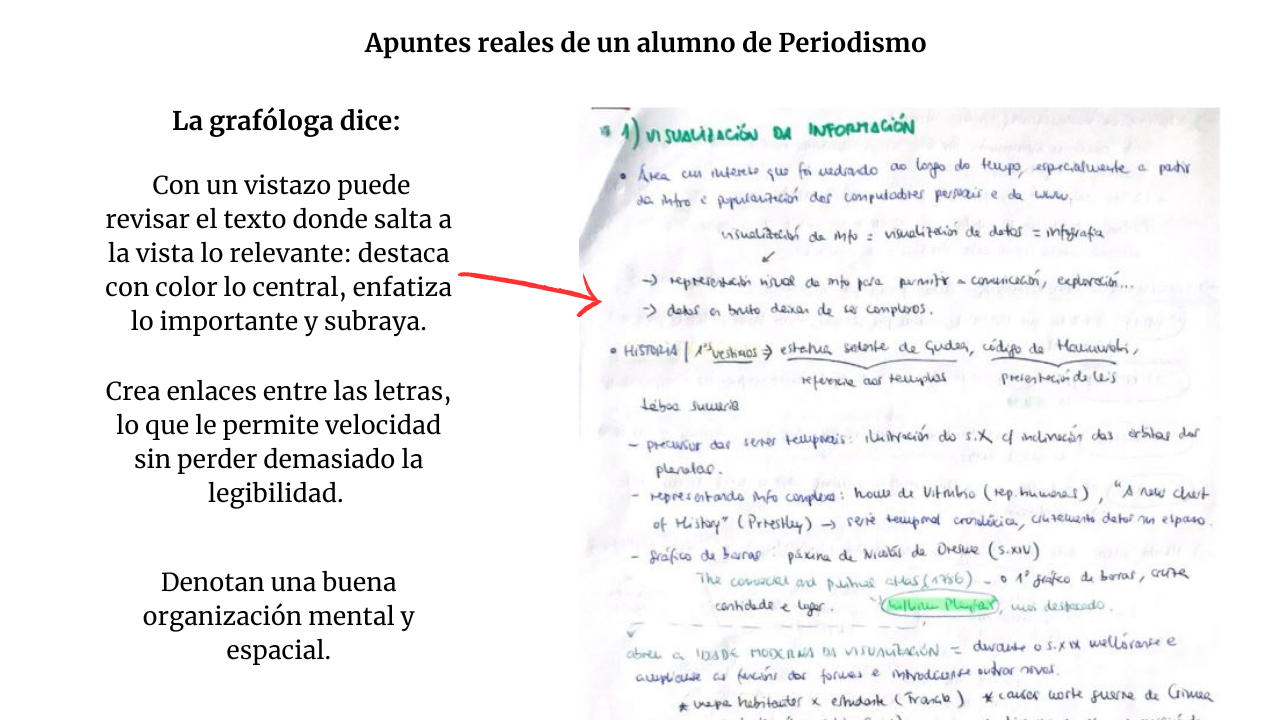 Apuntes reales de un alumno de Periodismo
La grafóloga dice:
Con un vistazo puede
revisar el texto donde salta a
la vista lo relevante: destaca
con color lo central, enfatiza
lo importante y subraya.
Crea enlaces entre las letras,
lo que le permite velocidad
sin perder demasiado la
legibilidad.
Denotan una buena
organización mental y
espacial.
1) VISUALIZACIÓN DA INFORMACIÓN
• Área cun interese que foi medrando ao longo do tempo, especialmente a partir
da intro e popularización dos computadores persoais e da www.
visualización da info = visualización de datos = infografía
↙
→ representación visual da info para permitir a comunicación, exploración...
→ datos en bruto deixan de ser complexos.
• HISTORIA | 1ºs vestixios → estatua sedente de Gudea, código de Hammurabi,
referencia aos templos presentación de leis
táboa sumeria
- precursor das series temporais: ilustración do s.X c/ inclinación das órbitas dos
planetas.
- representando info complexa: home de Vitrubio (rep. humanos), "A new chart
of History" (Priestley) → serie temporal cronolóxica, datos no espazo.
- gráfico de barras: páxina de Nicolás de Oresme (s.XIV)
The comercial and political atlas (1786) - o 1º gráfico de barras,
cantidade e lugar. William Playfair, moi destacado.
abreu a IDADE MODERNA DA VISUALIZACIÓN = durante o s.XIX mellóranse e
amplíanse as funcións das formas e introdúcense outras novas.
* mapa habitantes x estudante (Francia) * causas morte guerra de Crimea